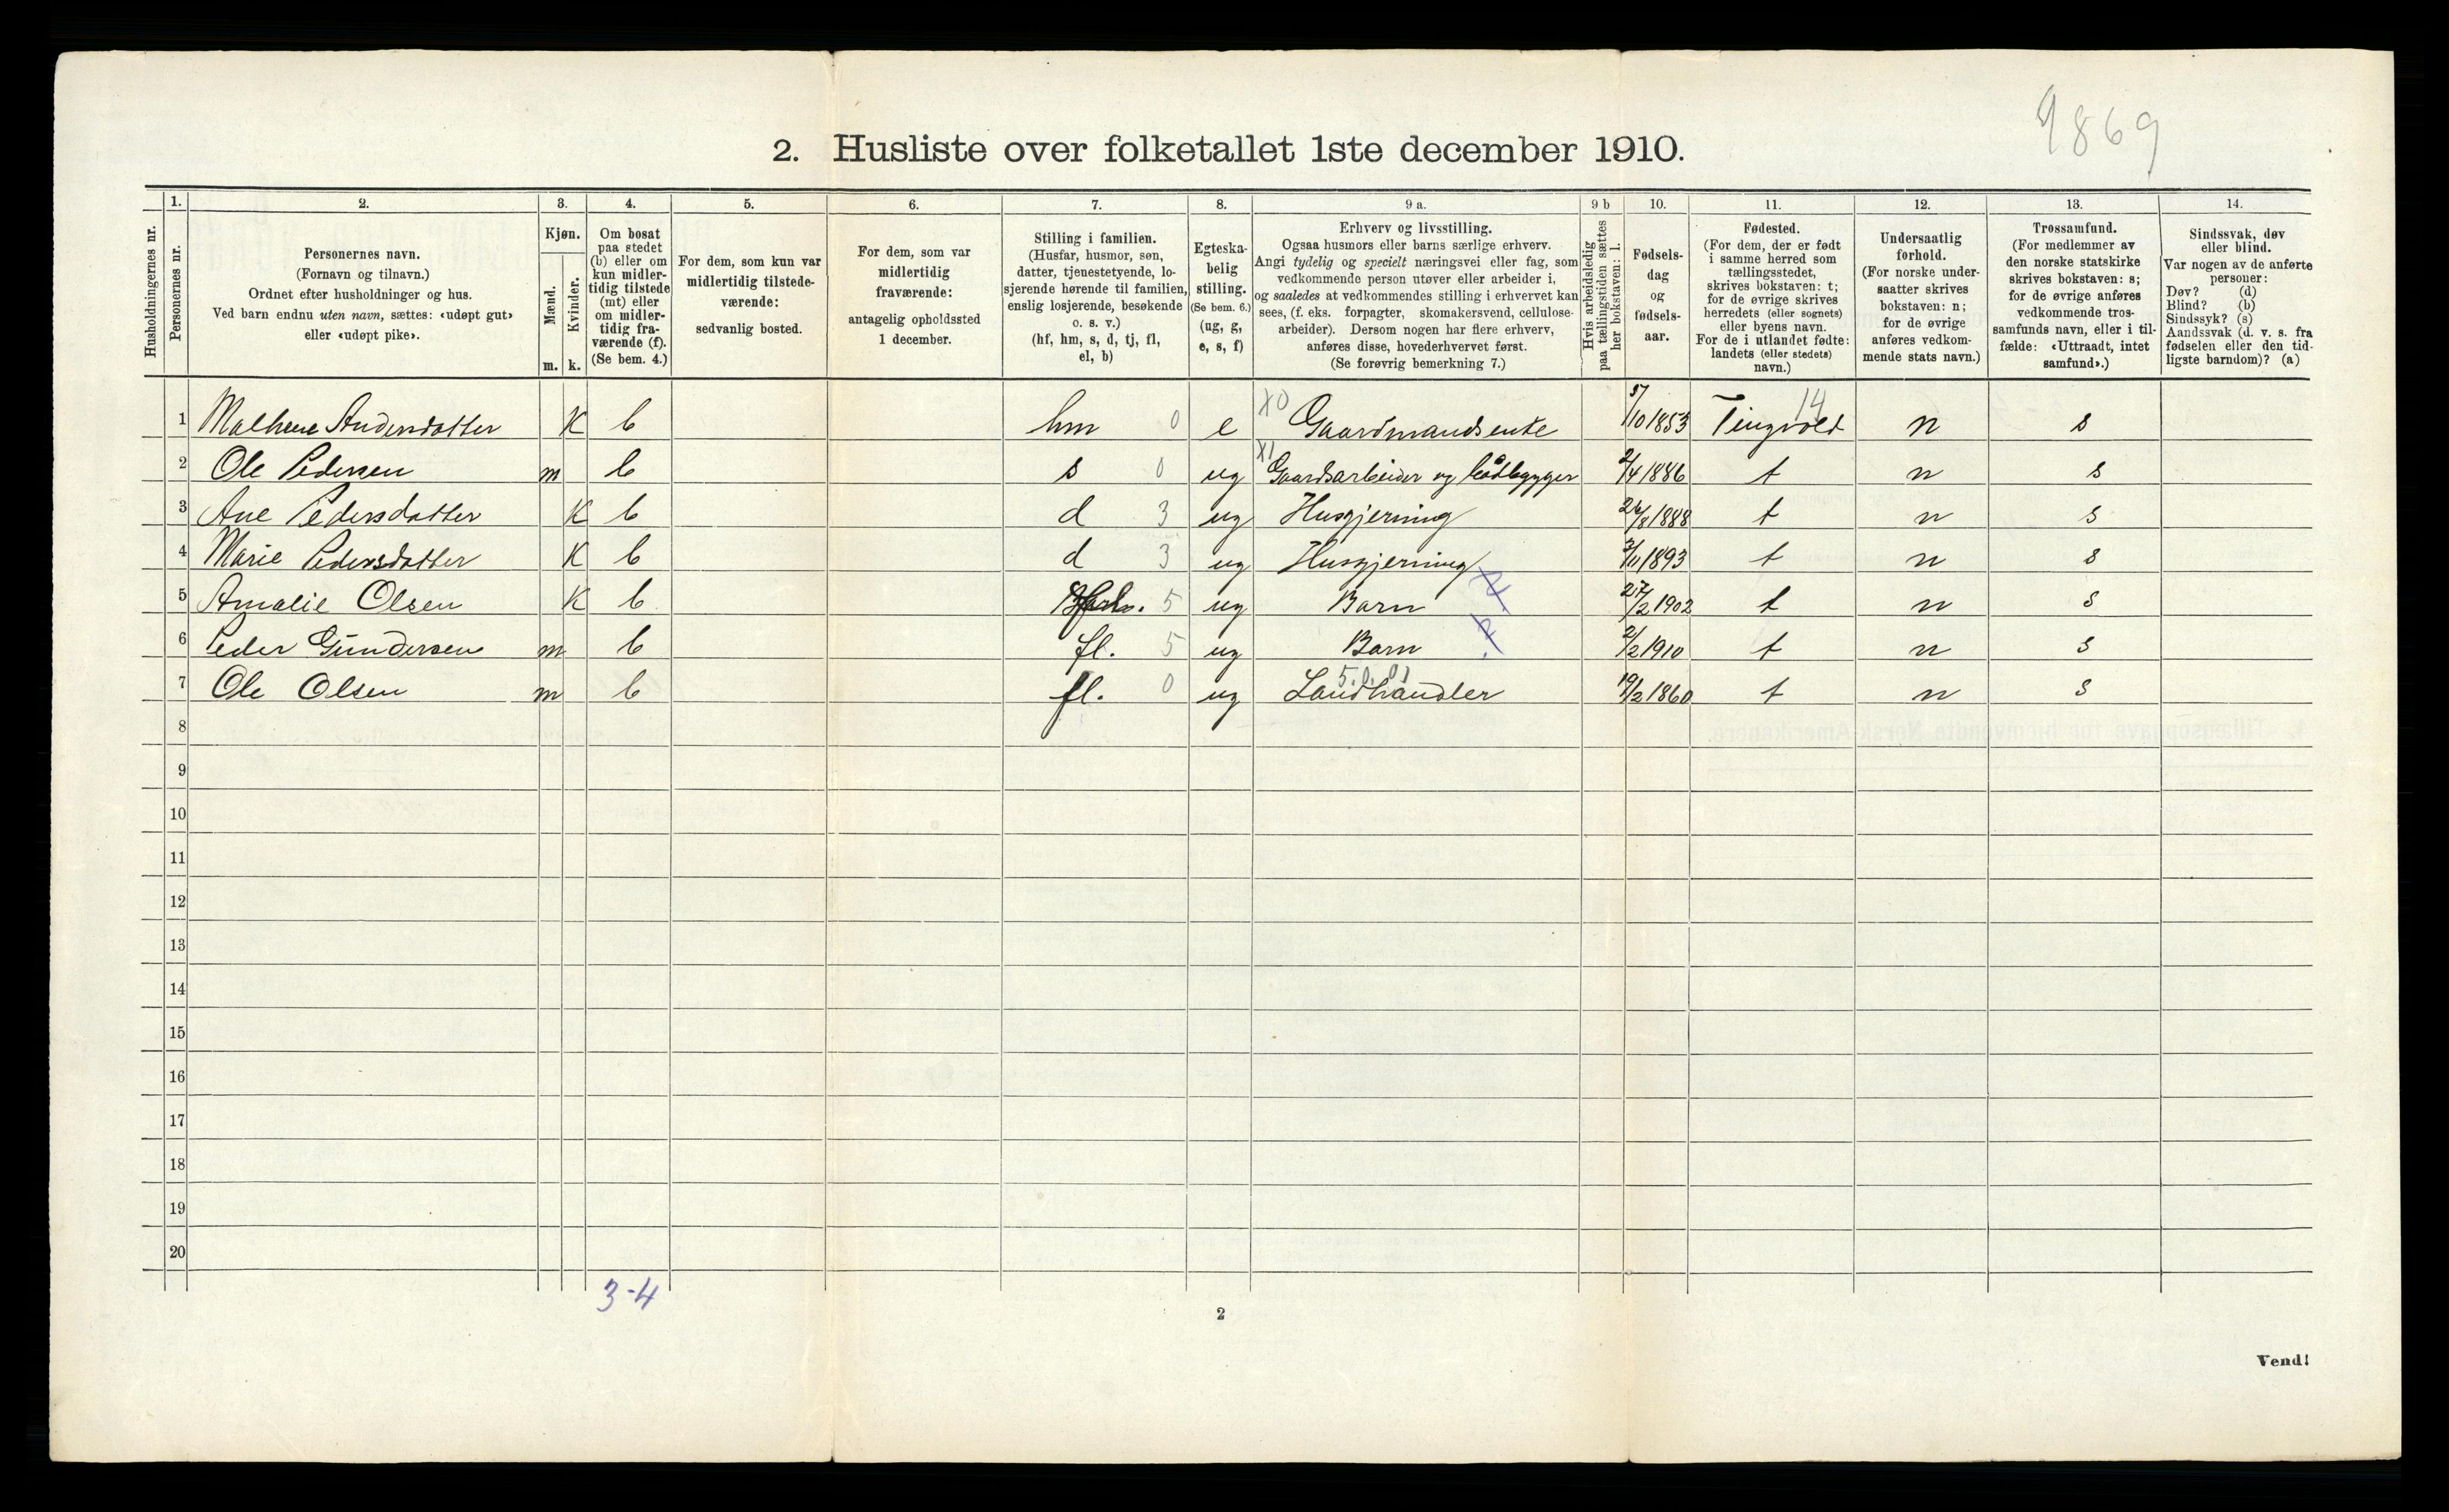 9869
2. Husliste over folketallet 1ste december 1910.
Husholdningernes nr.
1.
Personernes nr.
2.
Personernes navn.
(Fornavn og tilnavn.)
Ordnet efter husholdninger og hus.
Ved barn endnu uten navn, sættes: «udøpt gut»
eller «udøpt pike».
3.
Kjøn.
Mænd.
Kvinder.
m. k.
4.
Om bosat
paa stedet
(b) eller om
kun midler-
tidig tilstede
(mt) eller
om midler-
tidig fra-
værende (f).
(Se bem. 4.)
5.
For dem, som kun var
midlertidig tilstede-
værende:
sedvanlig bosted.
6.
For dem, som var
midlertidig
fraværende:
antagelig opholdssted
1 december.
7.
Stilling i familien.
(Husfar, husmor, søn,
datter, tjenestetyende, lo-
sjerende hørende til familien,
enslig losjerende, besøkende
o. s. v.)
(hf, hm, s, d, tj, fl,
el, b)
8.
Egteska-
belig
stilling.
(Se bem. 6.)
(ug, g,
e, s, f)
9 a.
Erhverv og livsstilling.
Ogsaa husmors eller barns særlige erhverv.
Angi tydelig og specielt næringsvei eller fag, som
vedkommende person utøver eller arbeider i,
og saaledes at vedkommendes stilling i erhvervet kan
sees, (f. eks. forpagter, skomakersvend, cellulose-
arbeider). Dersom nogen har flere erhverv,
anføres disse, hovederhvervet først.
(Se forøvrig bemerkning 7.)
9 b
Hvis arbeidsledig
paa tællingstiden sættes
her bokstaven: l.
10.
Fødsels-
dag
og
fødsels-
aar.
11.
Fødested.
(For dem, der er født
i samme herred som
tællingsstedet,
skrives bokstaven: t;
for de øvrige skrives
herredets (eller sognets)
eller byens navn.
For de i utlandet fødte:
landets (eller stedets)
navn.)
12.
Undersaatlig
forhold.
(For norske under-
saatter skrives
bokstaven: n;
for de øvrige
anføres vedkom-
mende stats navn.)
13.
Trossamfund.
(For medlemmer av
den norske statskirke
skrives bokstaven: s;
for de øvrige anføres
vedkommende tros-
samfunds navn, eller i til-
fælde: «Uttraadt, intet
samfund».)
14.
Sindssvak, døv
eller blind.
Var nogen av de anførte
personer:
Døv? (d)
Blind? (b)
Sindssyk? (s)
Aandssvak (d. v. s. fra
fødselen eller den tid-
ligste barndom)? (a)
1 Andersdatter K b hm 0 e X0 Gaardmandsenke 5/10 1853 Tingvold 14 n s
2 Ole Pedersen m b s 0 ug X1 Gaardsarbeider og baatbygger 2/4 1886 t n s
3 Ane Pedersdatter K b d 3 ug Husgjerning 26/8 1888 t n s
4 Marie Pedersdatter K b d 3 ug Husgjerning 3/11 1893 t n s
5 Amalie Olsen K b 5 ug Barn 27/2 1902 t n s
6 Peder Gundersen m b fl. 5 ug Barn 2/2 1910 t n s
7 Ole Olsen m b fl. 0 ug 5.0.01 Landhandler 19/2 1860 t n s
8
9
10
11
12
13
14
15
16
17
18
19
20
3-4
2
Vend!